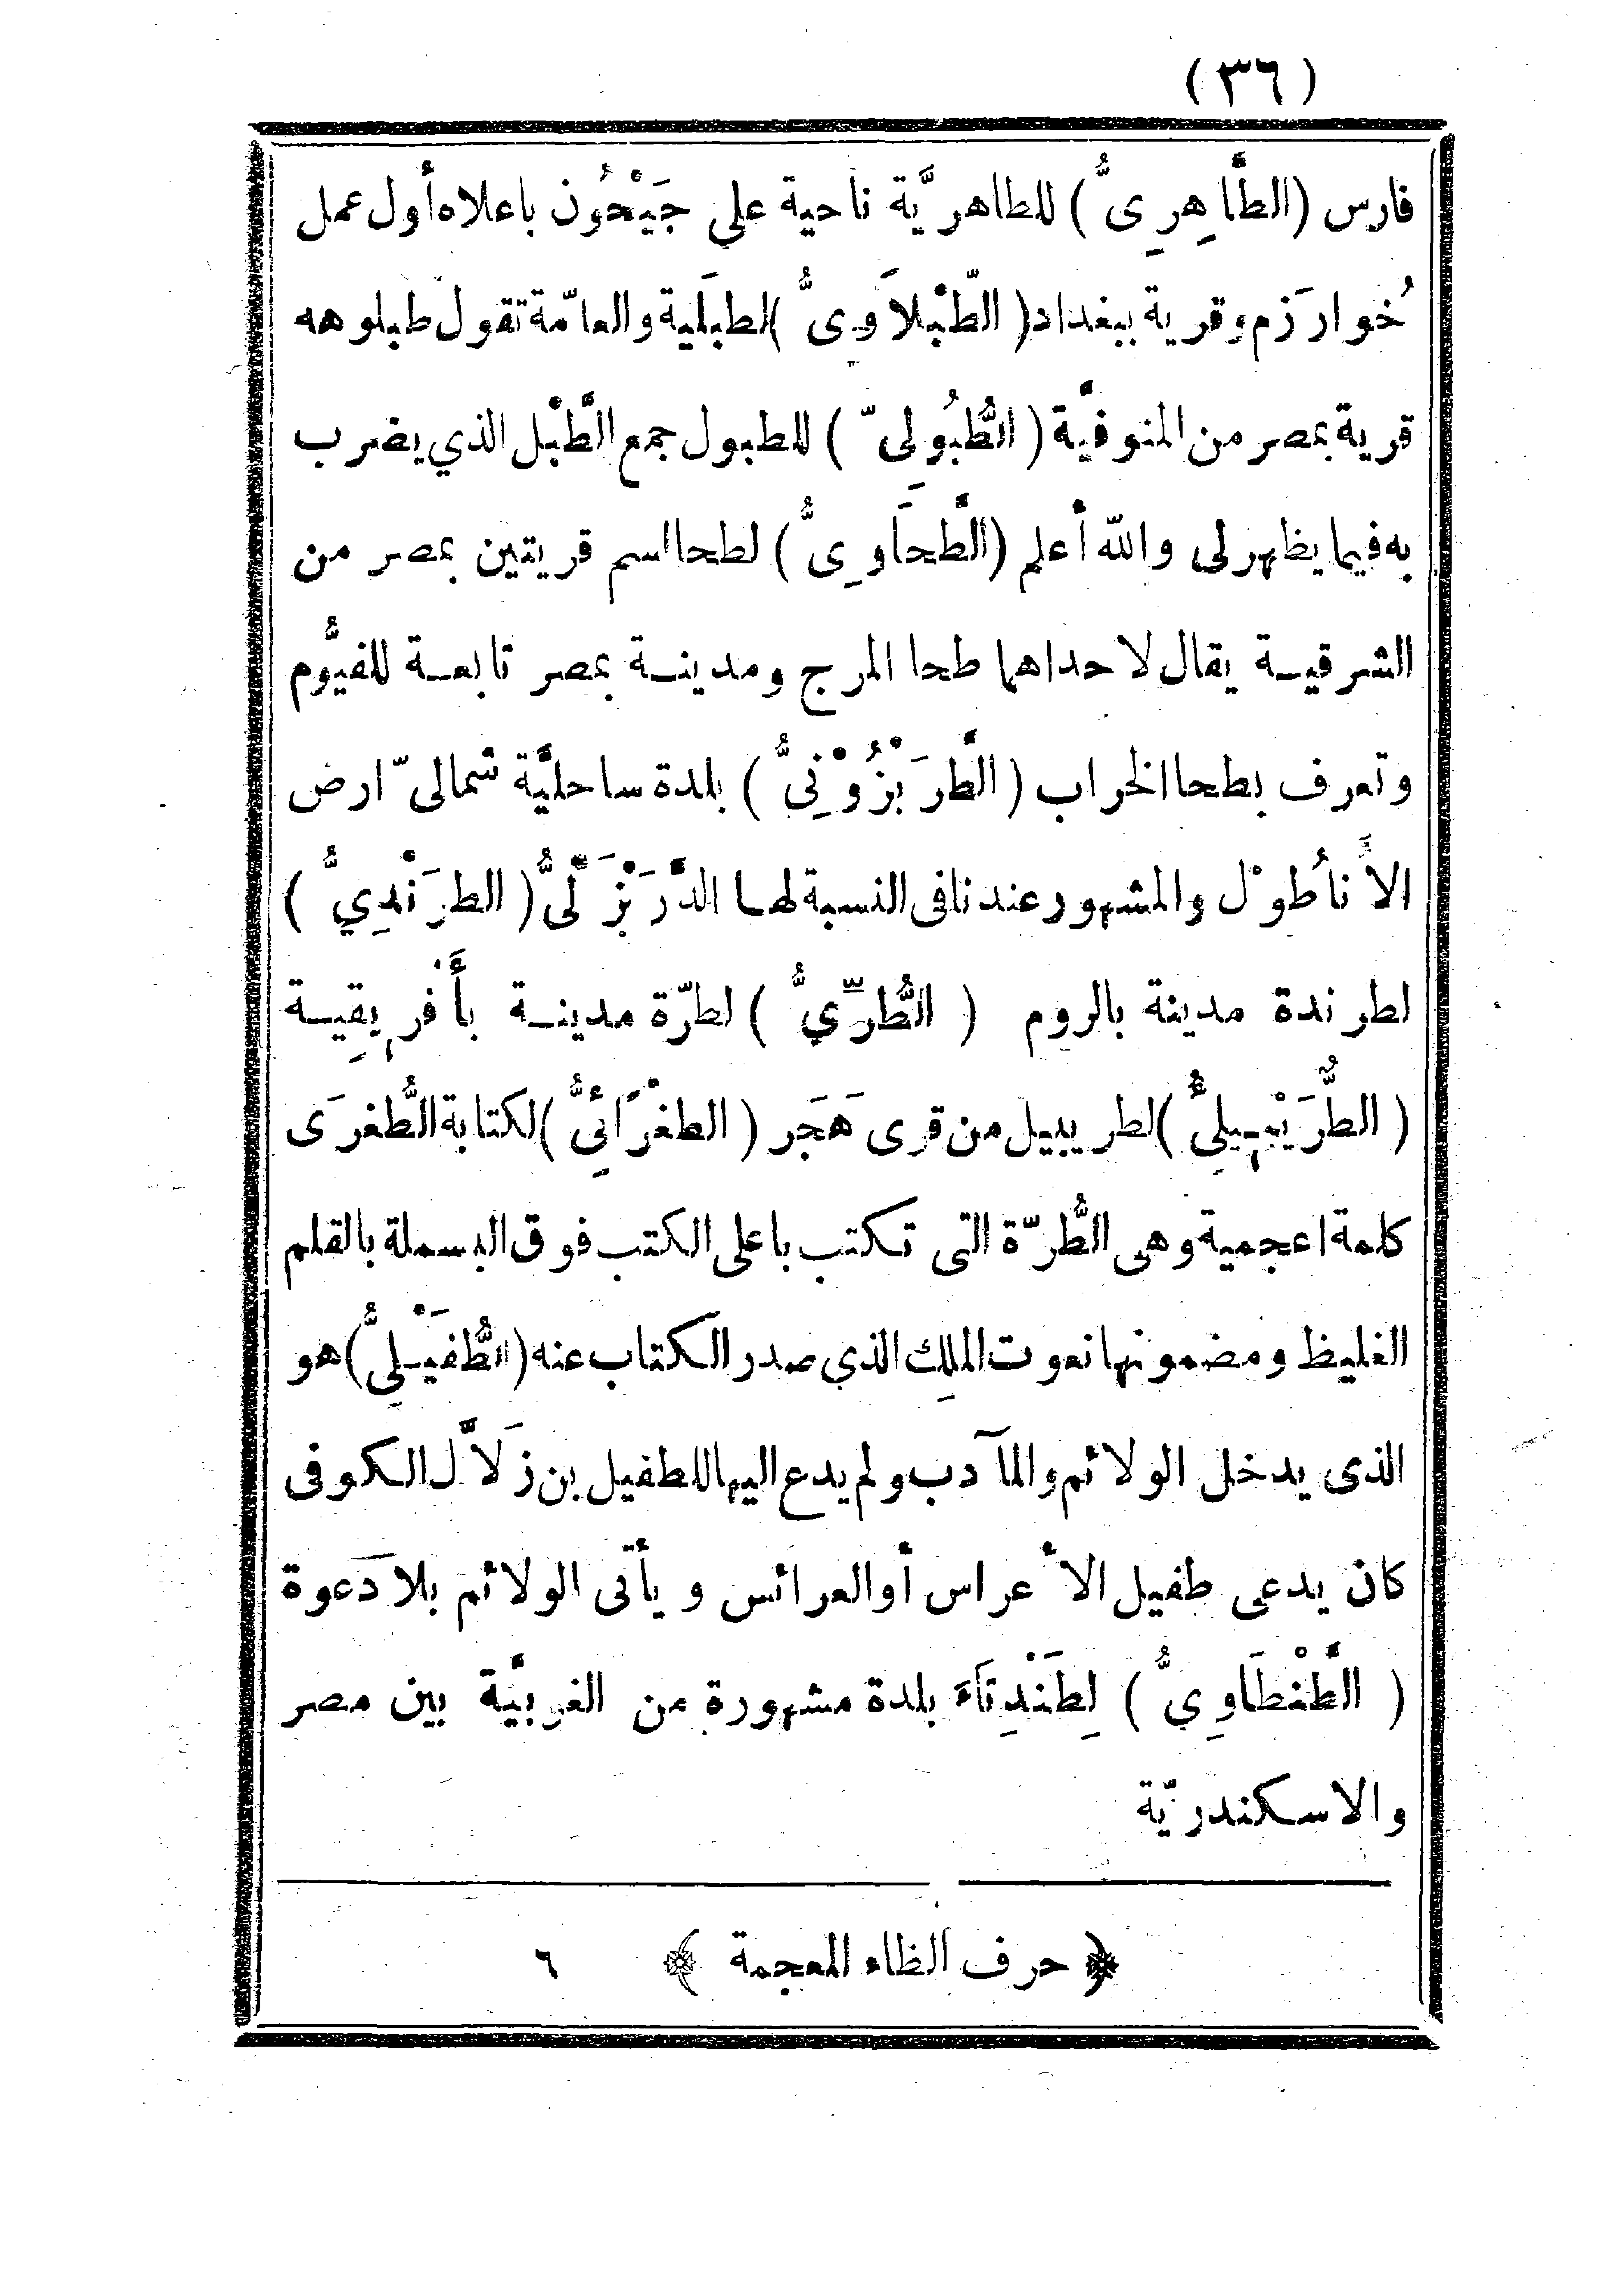 (٣٦)
فارس (الطَّاهِرِىُّ) للطاهريَّة ناحية على جَيْحُون باعلاه أول عمل
خُوارَزم وقرية ببغداد (الطَّبْلاَوِىُّ) لطبَلية والعامّة تقول طبلوهه
قرية بمصر من المنوفيَّة (الطُّبُولِىّ) للطبول جمع الطَّبْل الذي يضرب
به فيما يظهر لى والله أعلم (الطَّحَاوِىُّ) لطحا اسم قريتين بمصر من
الشرقيـة يقال لاحداهما طحا المرج ومدينـة بمصر تابعـة للفيُّوم
وتعرف بطحا الخراب (الطَّرَبْزُوْنِىُّ) بلدة ساحليَّة شمالىّ ارض
الأَناطُوْل والمشهور عندنا فى النسبة لهـا الدَّرَبْزَلِّىُّ (الطرَنْدِيُّ)
لطرندة مدينة بالروم (الطُّرِّيُّ) لطرّة مدينـة بأَفرِيقِيـة
(الطُّرَيْبِيلِىُّ) لطريبيل من قرى هَجَر (الطغْرَائِىُّ) لكتابة الطُّغرَى
كلمة اعجمية وهى الطُّرّة التى تكتب باعلى الكتب فوق البسملة بالقلم
الغليظ ومضمونها نعوت الملِك الذي صدر الكتاب عنه (الطُّفَيْـلِىُّ) هو
الذى يدخل الولائم والمآدب ولم يدع اليها للطفيل بن زَلاَّل الكوفى
كان يدعى طفيل الأعراس أو العرائس ويأتى الولائم بلا دَعوة
(الطَّنْطَاوِىُّ) لِطَنْدِتَاءَ بلدة مشهورة من الغربيَّة بين مصر
والاسكندريّة
﴿ حرف الظاء المعجمة ﴾ ٦